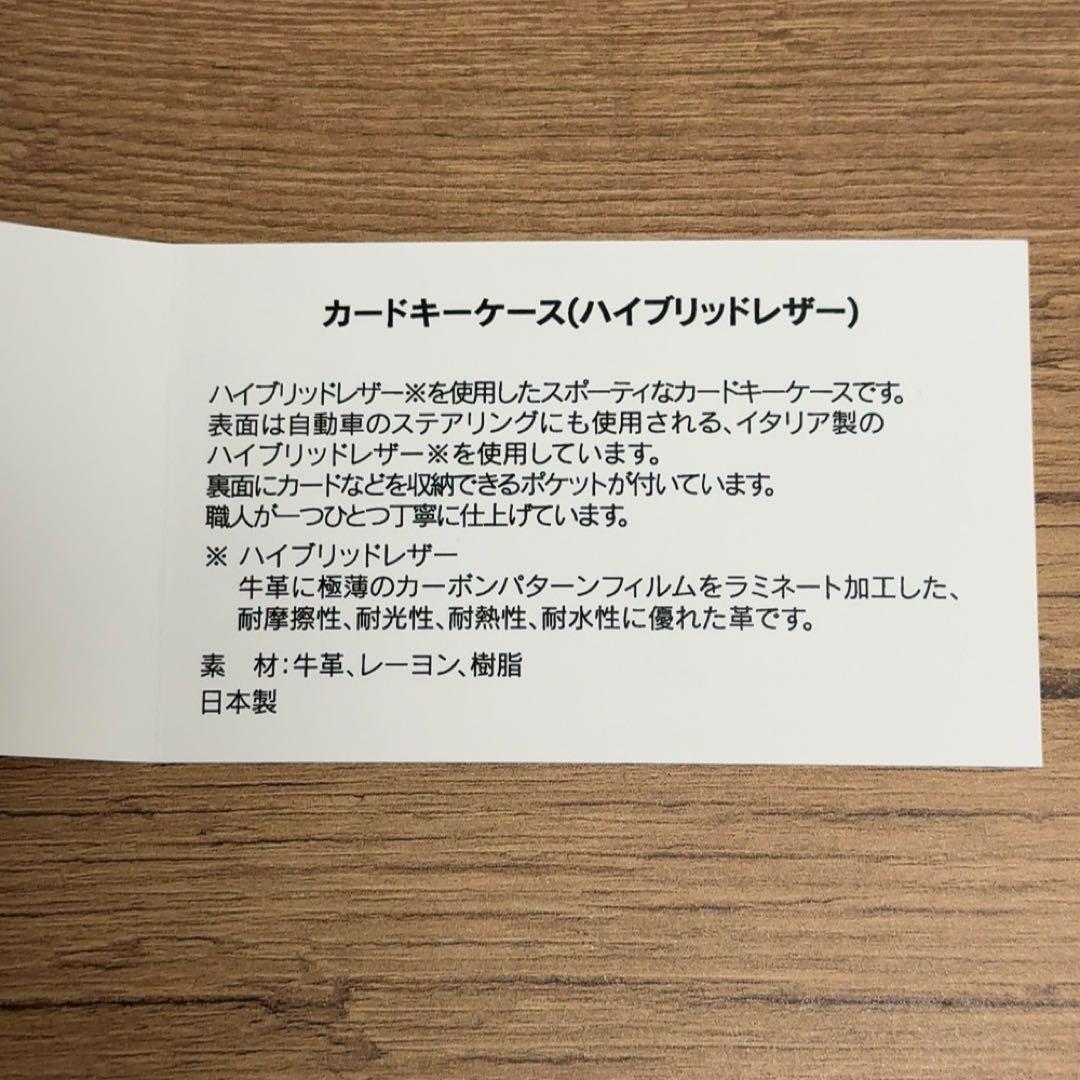 カードキーケース(ハイブリッドレザー)
ハイブリッドレザー※を使用したスポーティなカードキーケースです。
表面は自動車のステアリングにも使用される、イタリア製の
ハイブリッドレザー※を使用しています。
裏面にカードなどを収納できるポケットが付いています。
職人が一つひとつ丁寧に仕上げています。
※ ハイブリッドレザー
牛革に極薄のカーボンパターンフィルムをラミネート加工した、
耐摩擦性、耐光性、耐熱性、耐水性に優れた革です。
素　材:牛革、レーヨン、樹脂
日本製